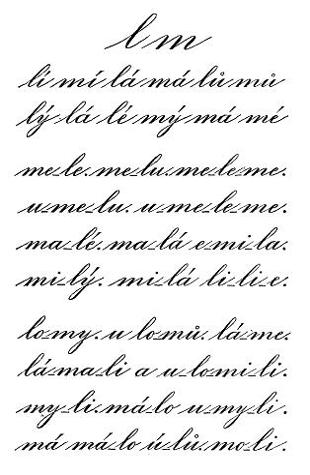 l m
lí mí lá má lů mů
lý lá lé mý má mé
me-le. me-lu. me-le-me.
u-me-lu. u-me-le-me.
ma-lé. ma-lá e-mi-la.
mi-lý. mi-lá li-li-e.
lo-my. u lo-mů. lá-me.
lá-ma-li a u-lo-mi-li.
my-li. má-lo u-my-li.
má má-lo ú-lů. mo-li.